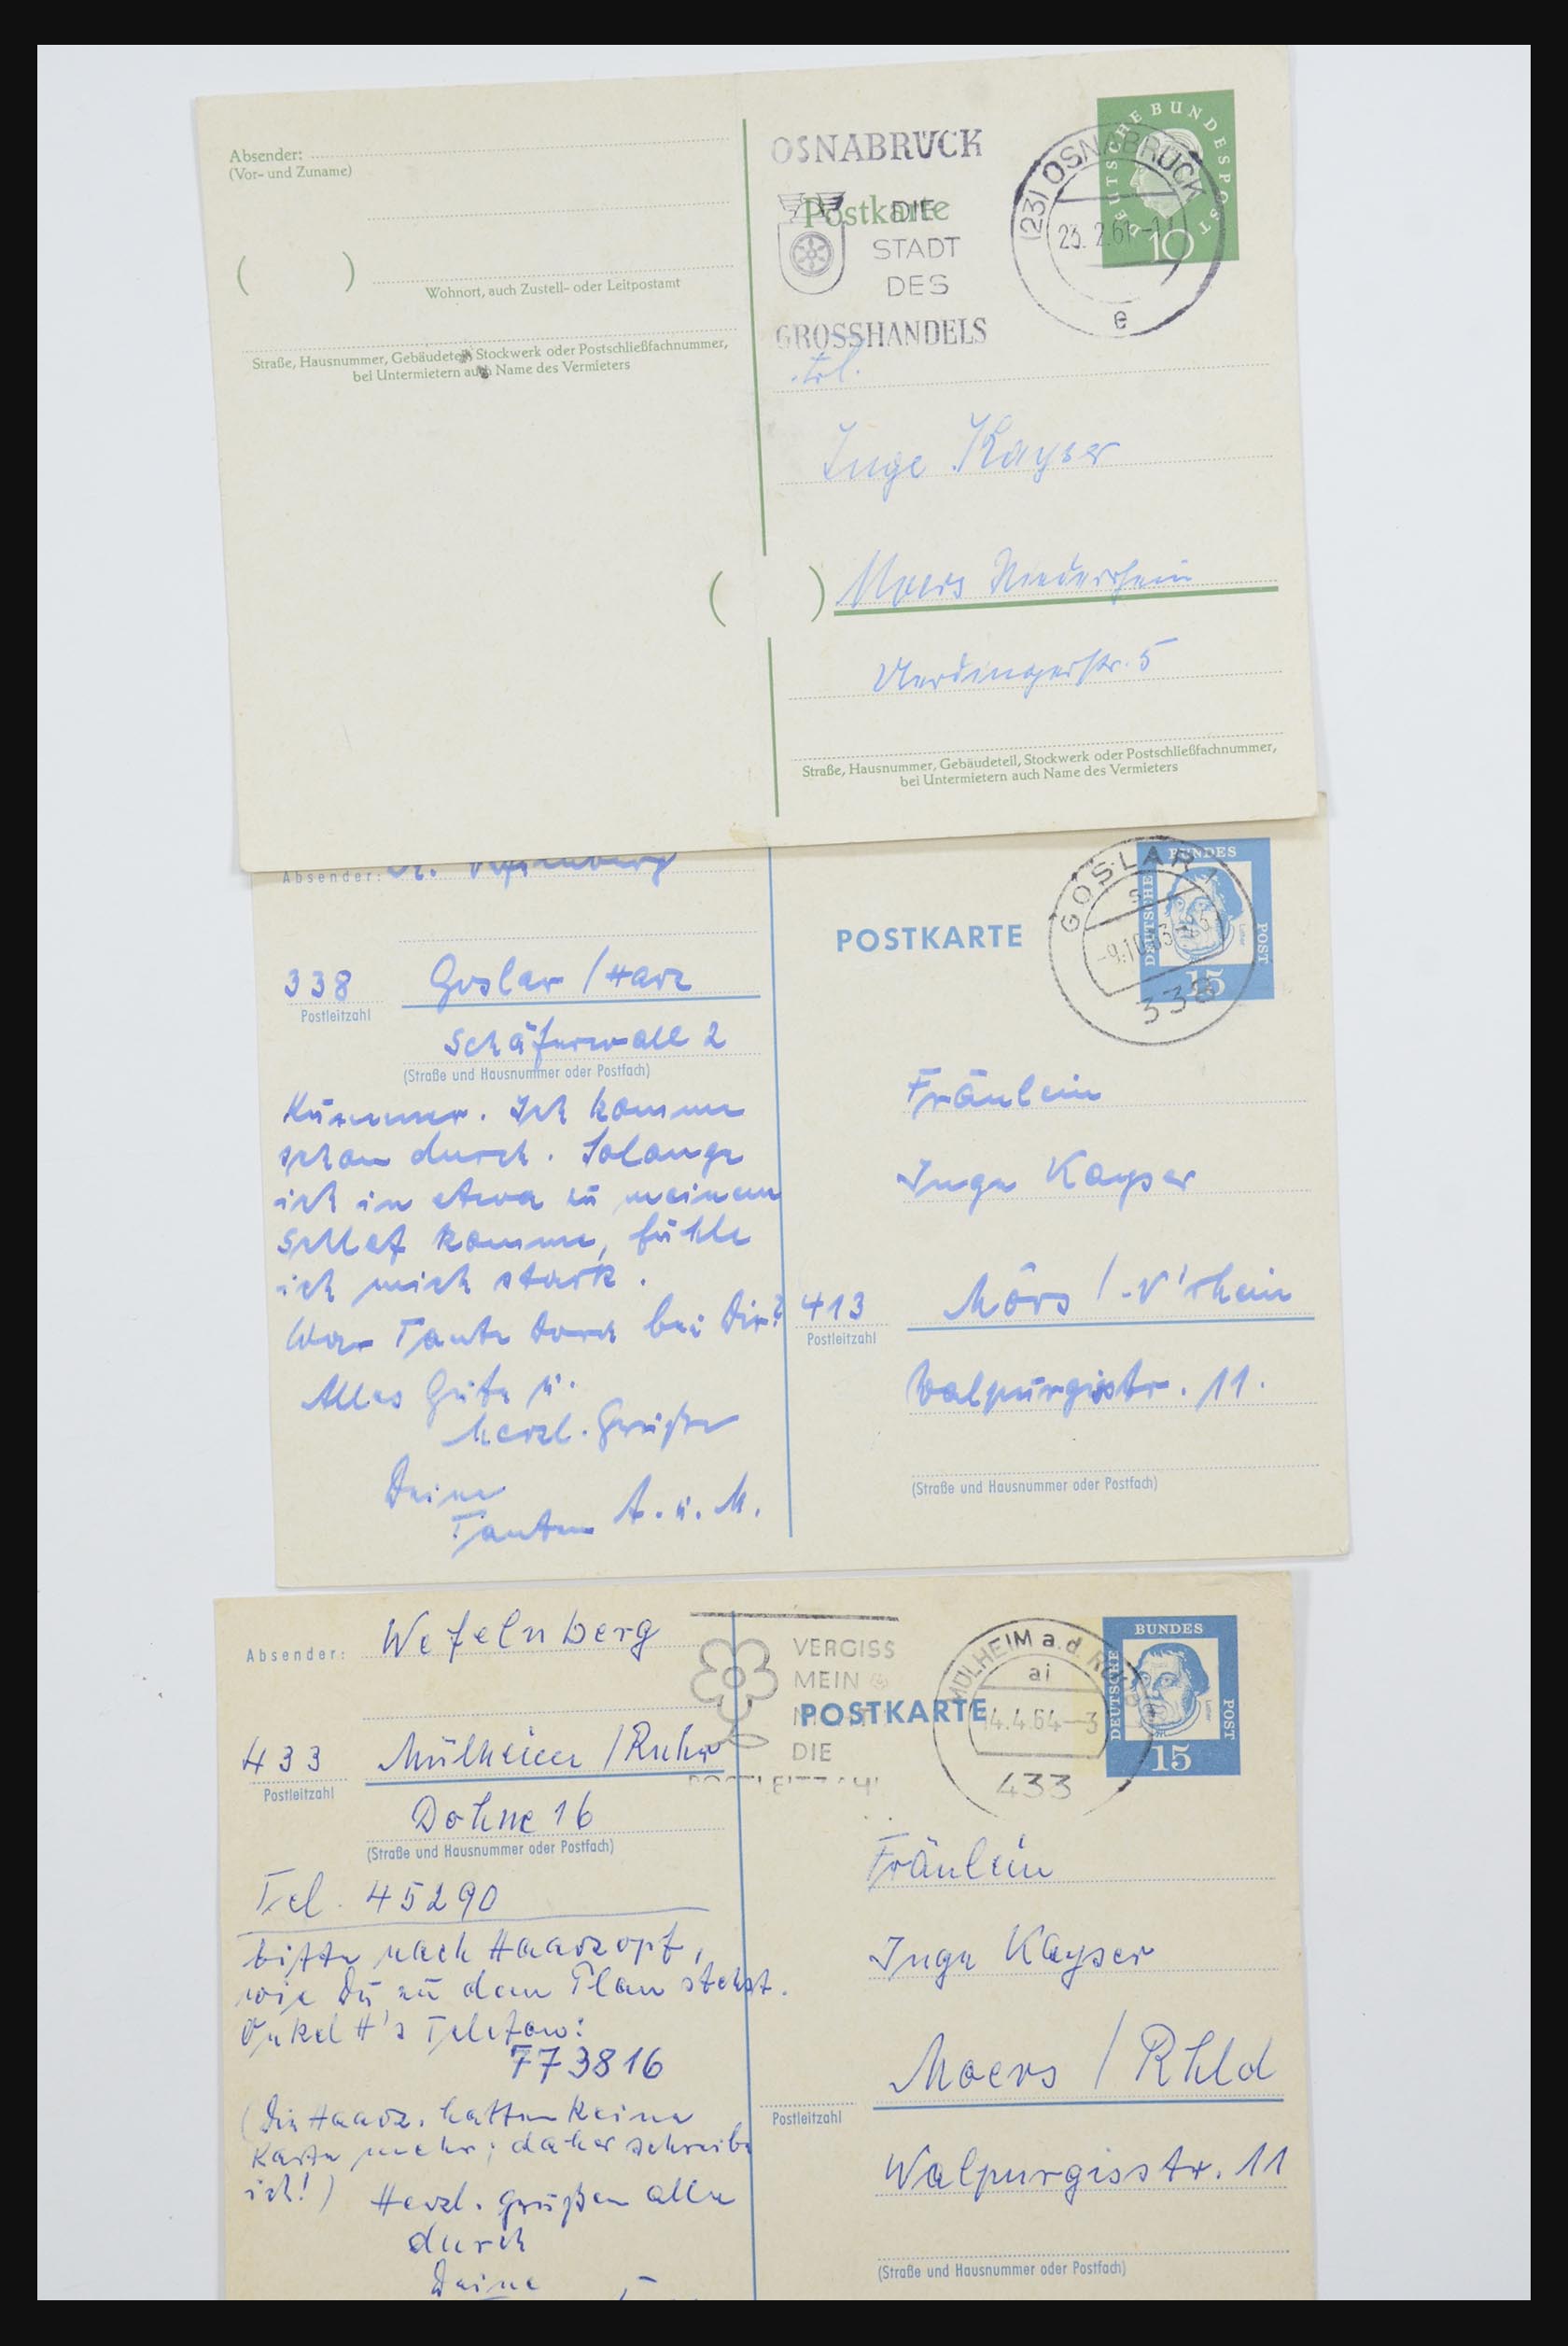 Absender:
(Vor- und Zuname)
( )
Wohnort, auch Zustell- oder Leitpostamt
Straße, Hausnummer, Gebäudeteil, Stockwerk oder Postschließfachnummer,
bei Untermietern auch Name des Vermieters
OSNABRÜCK
DIE
STADT
DES
GROSSHANDELS
Postkarte
(23) OSNABRÜCK
23.2.61
e
DEUTSCHE BUNDESPOST
10
Inge Kayser
( ) Moers Niederrhein
Uerdingerstr. 5
Straße, Hausnummer, Gebäudeteil, Stockwerk oder Postschließfachnummer,
bei Untermietern auch Name des Vermieters
Absender:
338 Goslar / Harz
Postleitzahl
Schäferwall 2
(Straße und Hausnummer oder Postfach)
Kummer. Ich komme
schon durch. Solange
ich in etwa zu meinem
Schlaf komme, fühle
ich mich stark.
War Tante Dora bei Dir?
Alles Gute u.
herzl. Grüße
Deine
Tanten A. u. M.
POSTKARTE
GOSLAR 1
-9.10.63
338
DEUTSCHE BUNDES POST
Luther
15
Fräulein
Inge Kayser
413 Mörs / N'rhein
Postleitzahl
Walpurgisstr. 11.
(Straße und Hausnummer oder Postfach)
Absender: Wefelnberg
433 Mülheim / Ruhr
Postleitzahl
Dohne 16
(Straße und Hausnummer oder Postfach)
Tel. 45290
bitte nach Haarzopf,
wie Du zu dem Plan stehst.
Onkel H's Telefon:
773816
(Die Haarz. hatten keine
Karte mehr; daher schreibe
ich!) Herzl. Grüßen alle
durch
Deine
VERGISS
MEIN
NICHT
DIE
POSTLEITZAHL
POSTKARTE
MÜLHEIM a.d. RUHR
ai
14.4.64-3
433
DEUTSCHE BUNDES POST
Luther
15
Fräulein
Inge Kayser
Moers / Rhld
Postleitzahl
Walpurgisstr. 11
(Straße und Hausnummer oder Postfach)